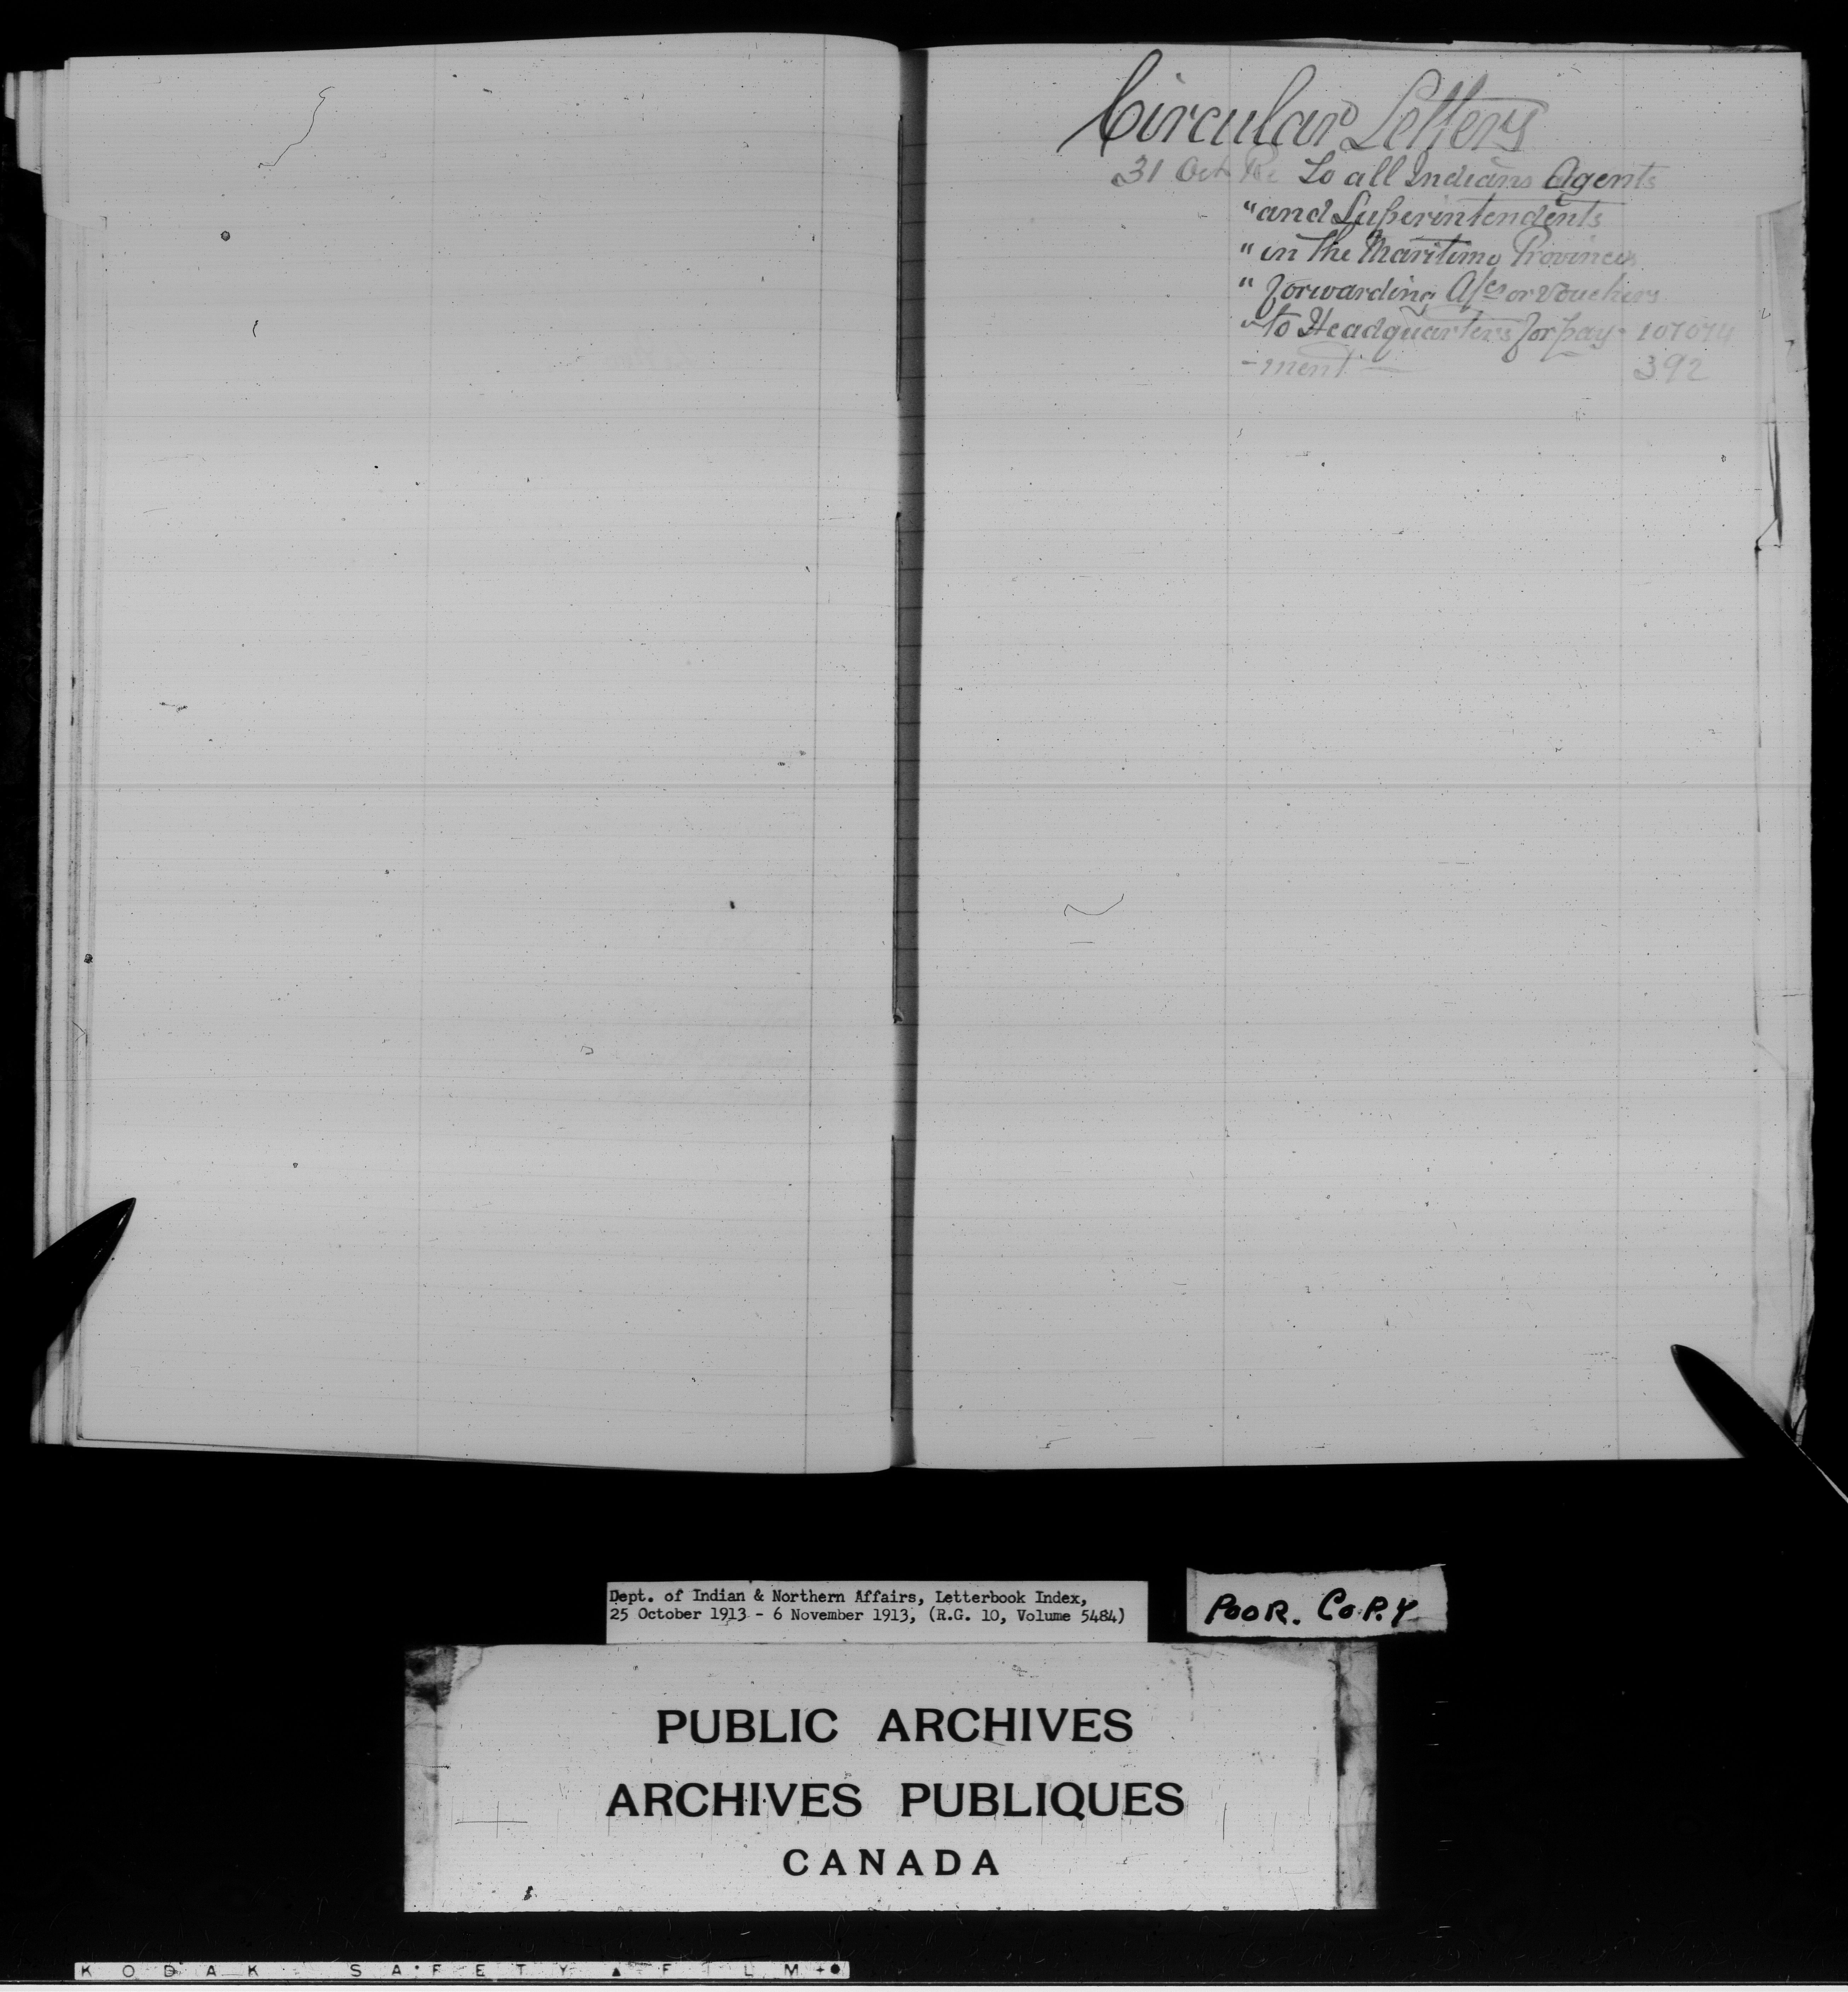 Circular Letters
31 Oct Re To all Indians Agents
" and Superintendents
" in The Maritime Provinces
" forwarding A/cs or Vouchers
" to Headquarters for pay- 107074
-ment — 392
Dept. of Indian & Northern Affairs, Letterbook Index,
25 October 1913 - 6 November 1913, (R.G. 10, Volume 5484)
POOR. COPY
PUBLIC ARCHIVES
ARCHIVES PUBLIQUES
CANADA
KODAK SAFETY FILM